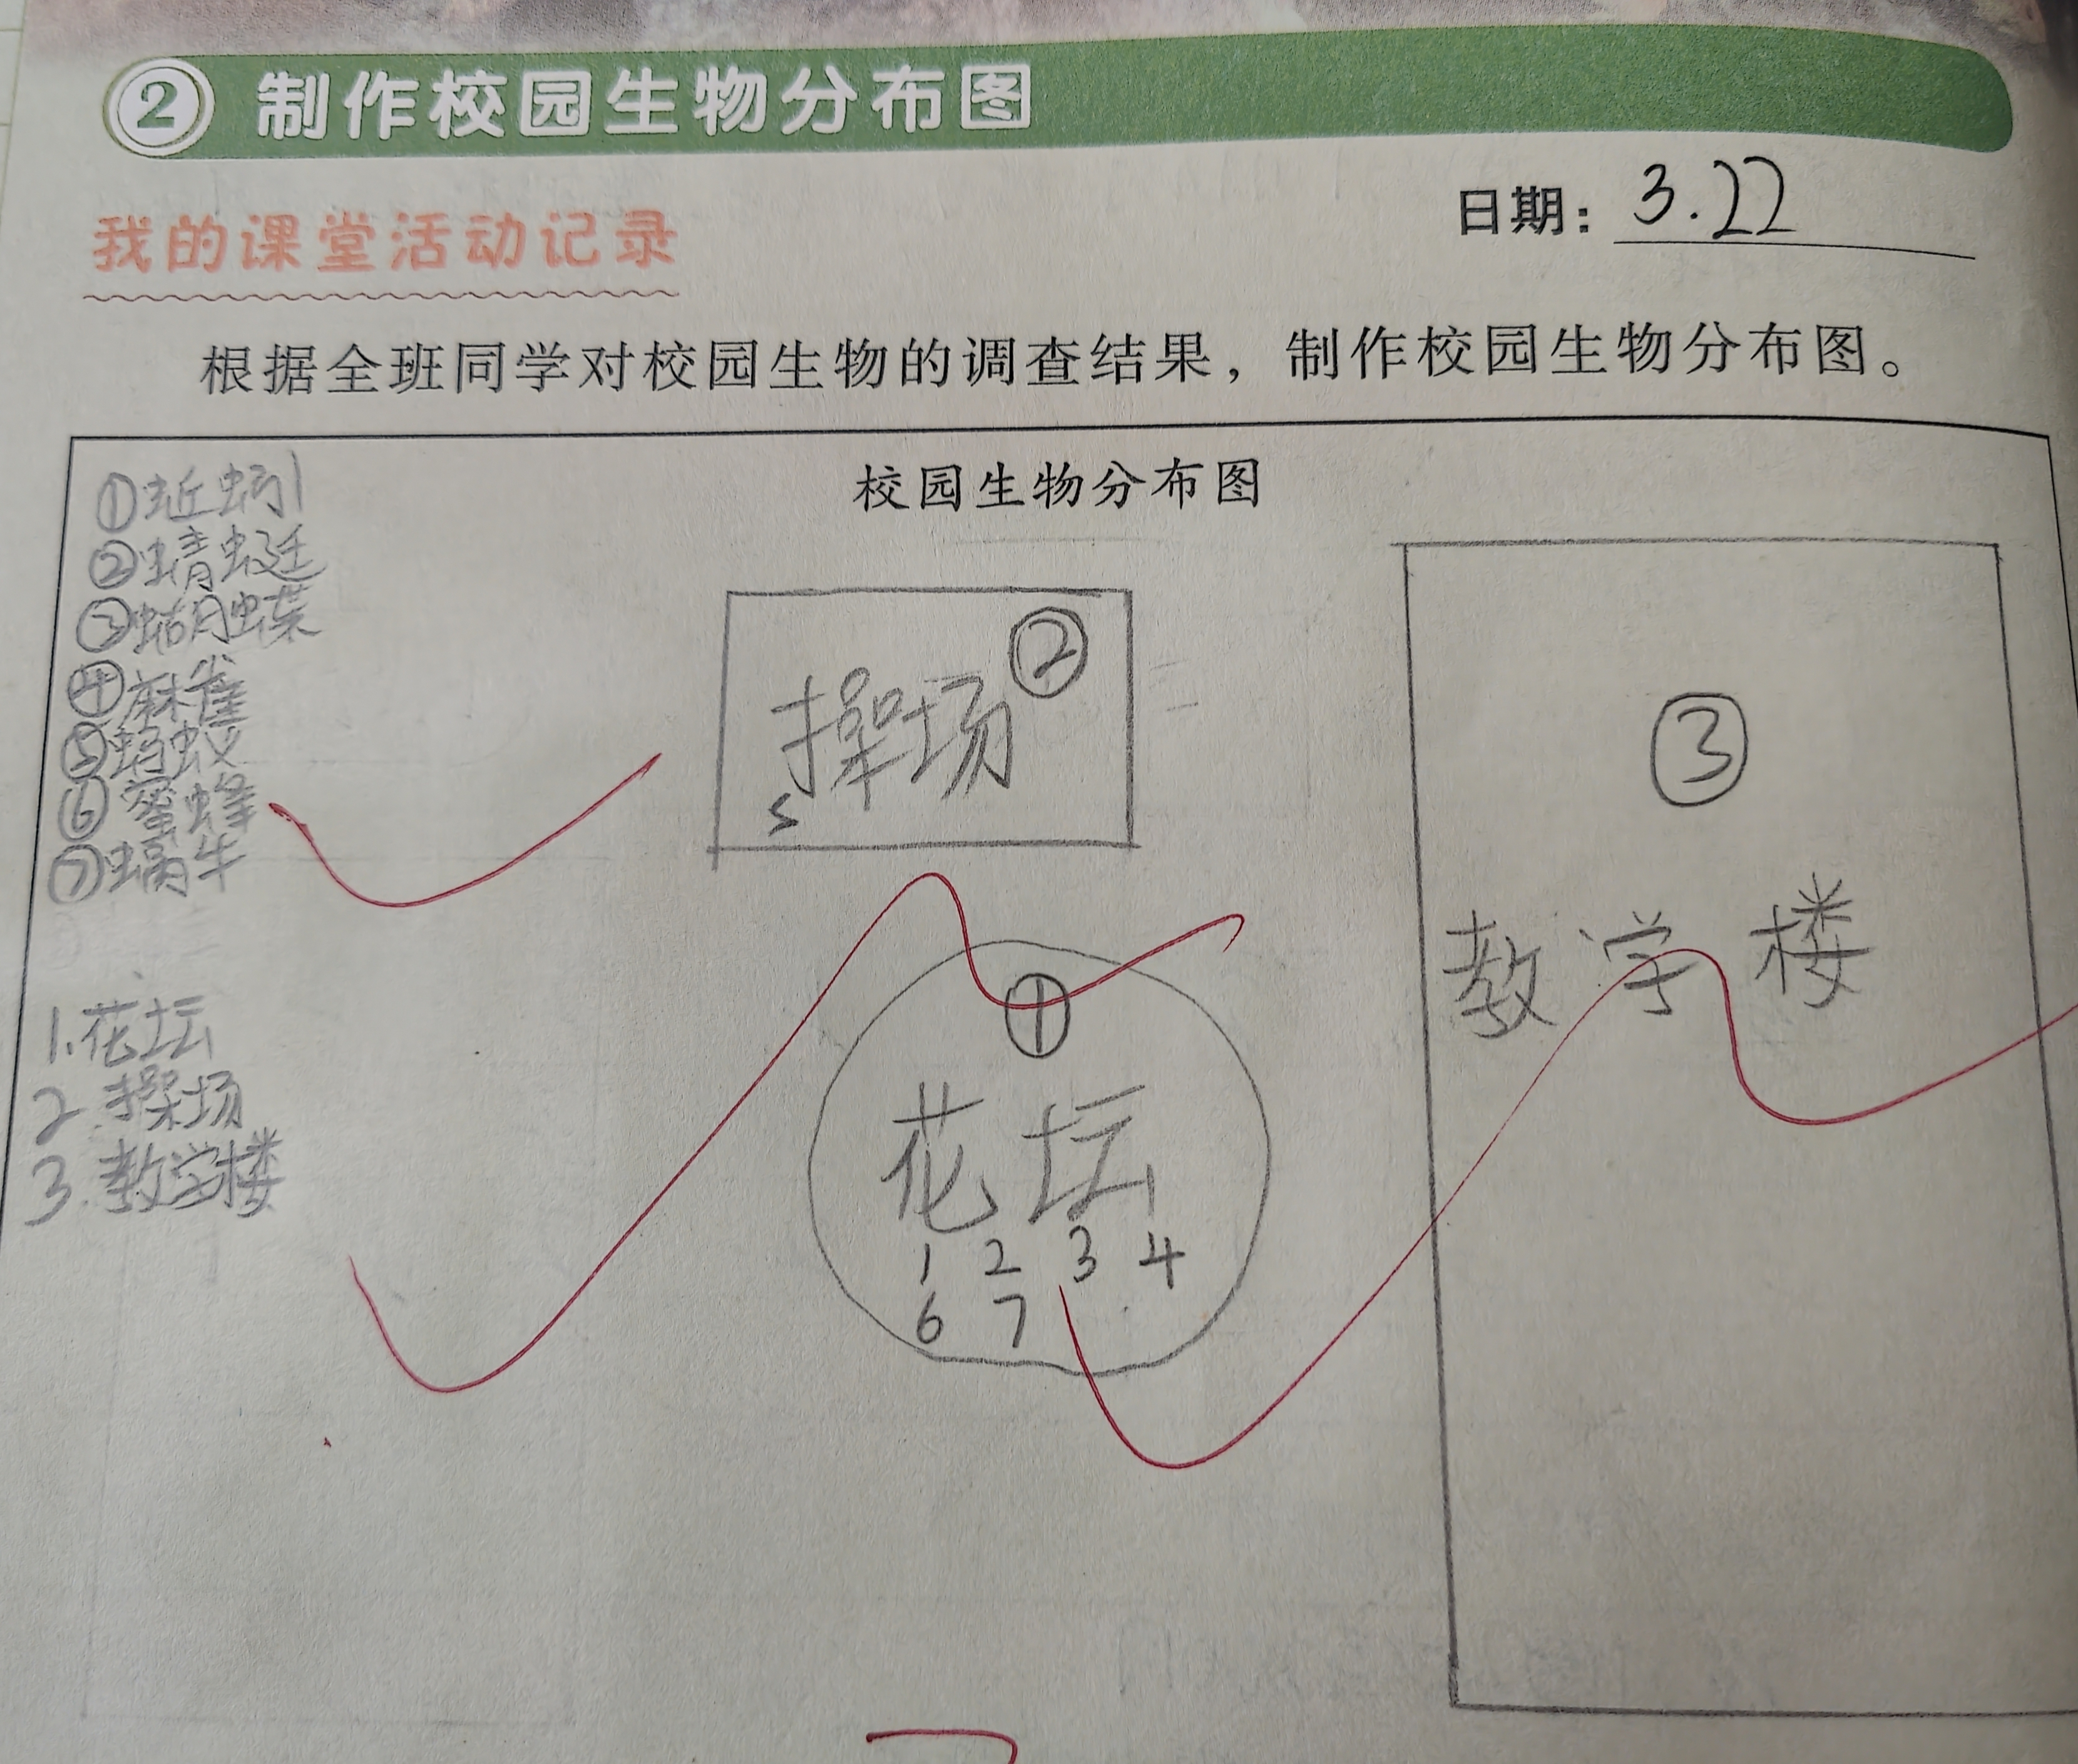 ② 制作校园生物分布图
日期：3.22
我的课堂活动记录
根据全班同学对校园生物的调查结果，制作校园生物分布图。
校园生物分布图
①蚯蚓
②蜻蜓
③蝴蝶
④麻雀
⑤蚂蚁
⑥蜜蜂
⑦蜗牛
1.花坛
2.操场
3.教学楼
②
操场
5
①
花坛
1 2 3 4
6 7
③
教学楼